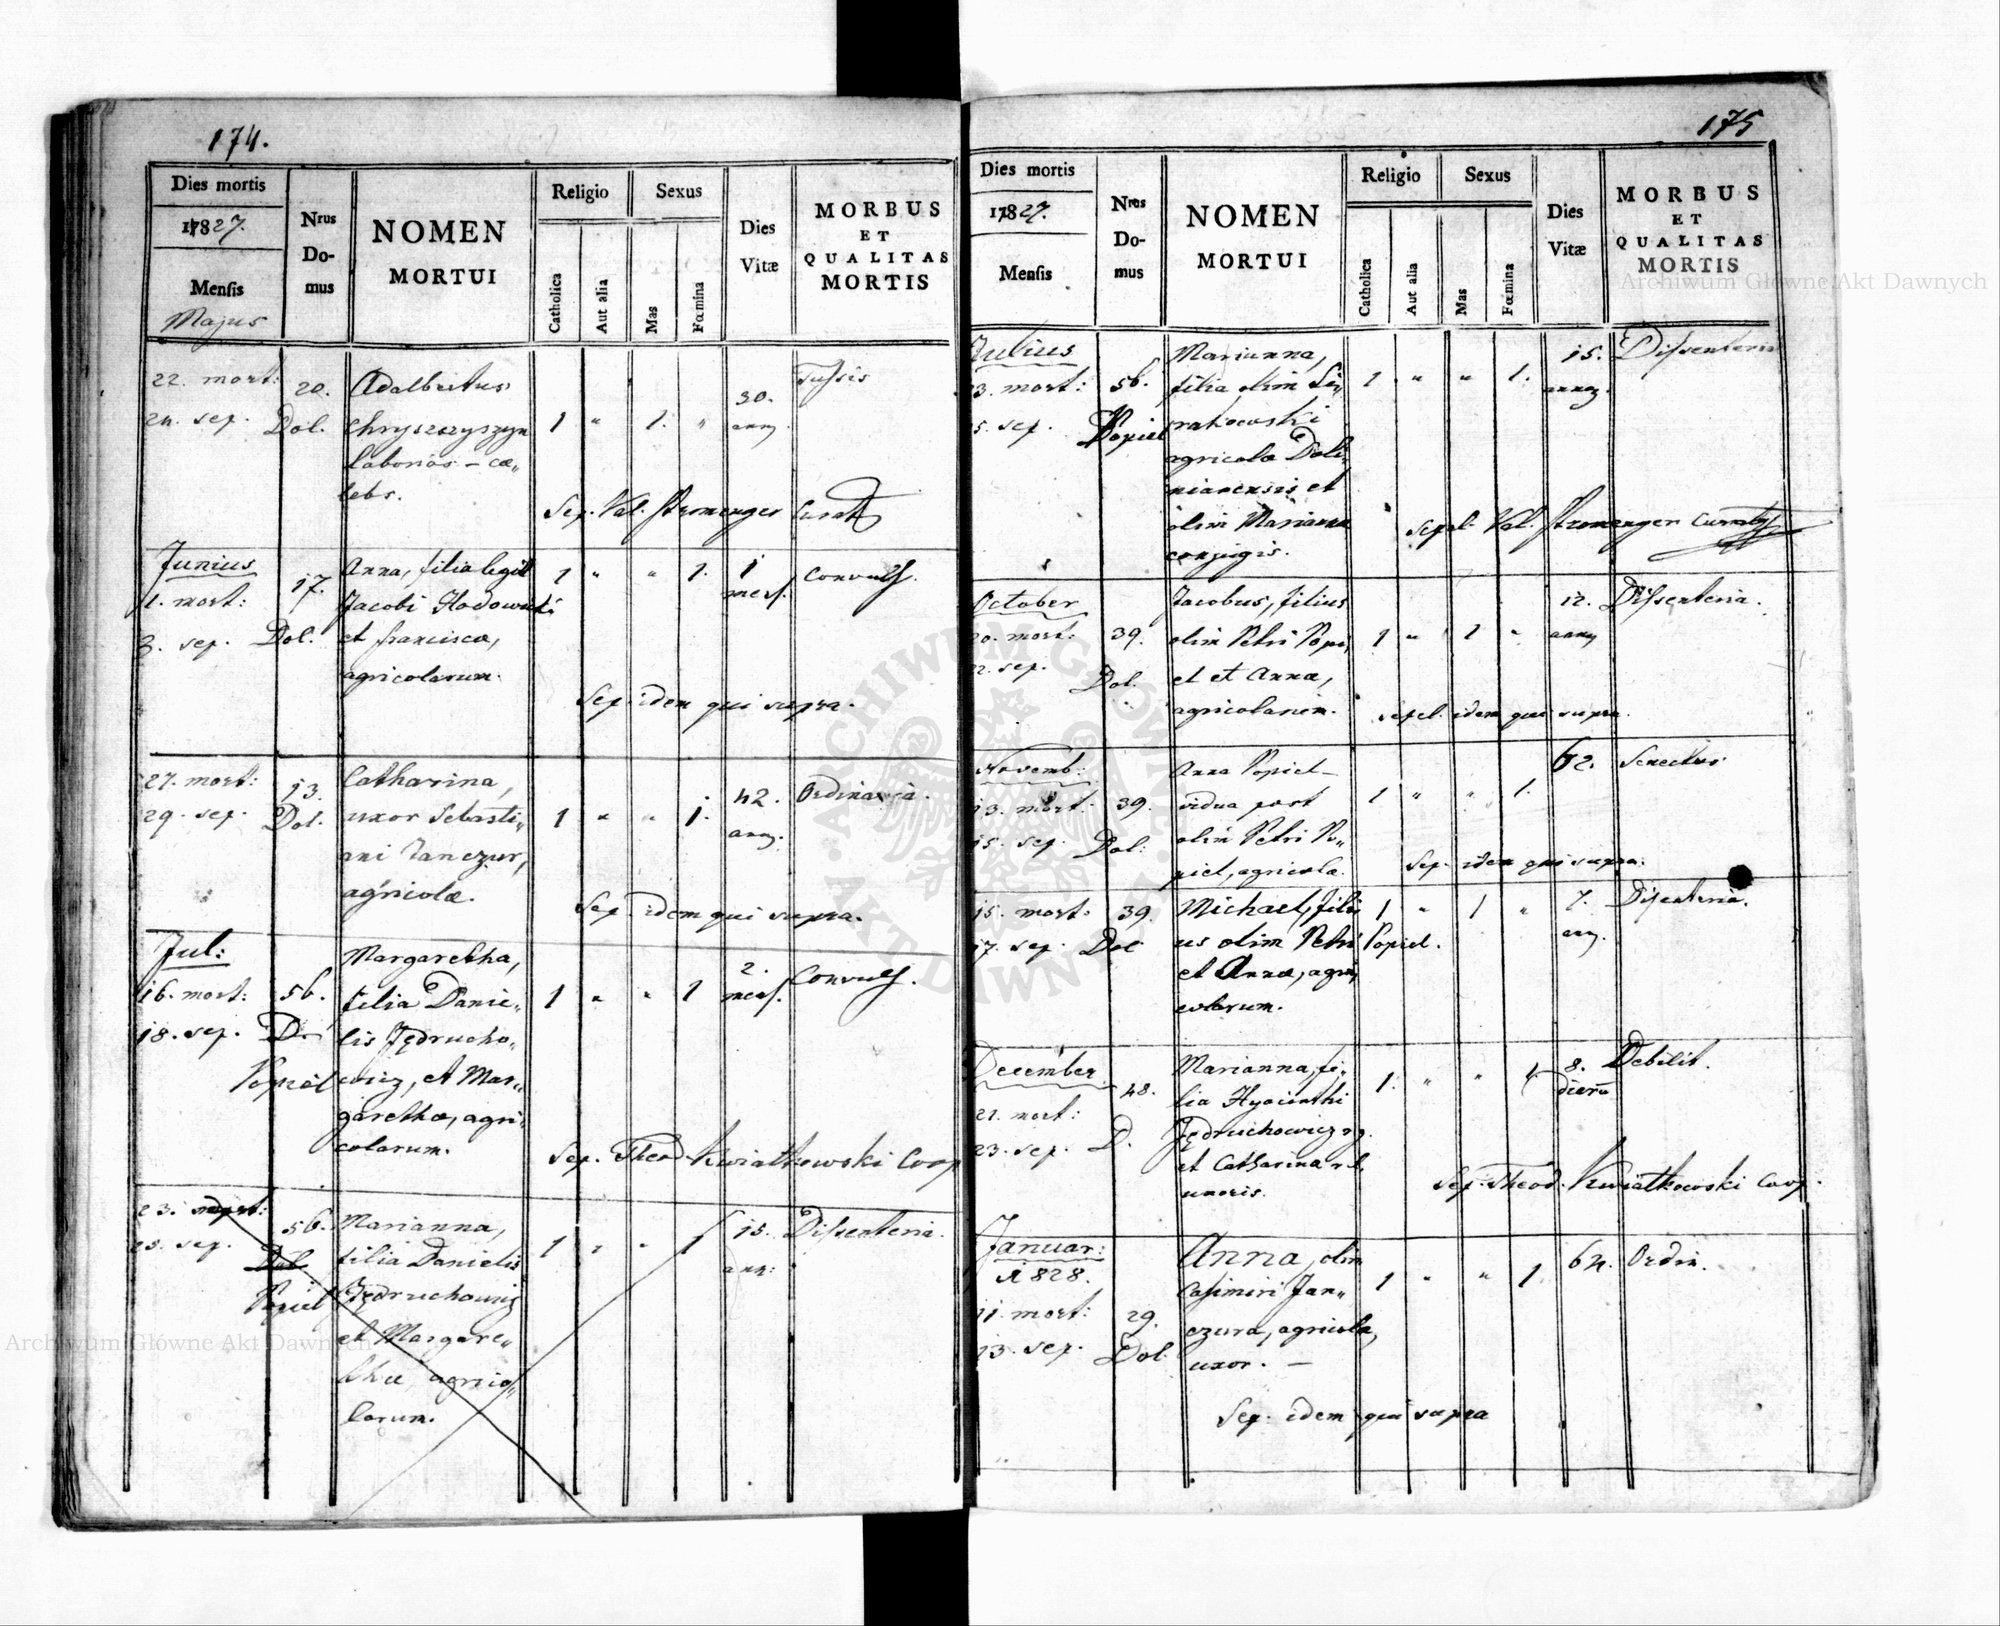 174.
Dies mortis
1827.
Mensis
Majus
Nrus
Do-
mus
NOMEN
MORTUI
Religio
Catholica
Aut alia
Sexus
Mas
Fœmina
Dies
Vitæ
MORBUS
ET
QUALITAS
MORTIS
22. mort: 20. Adalbertus 30. Tussis
24. sep. Dol. Chryszczyszyn 1 " 1. " ann
laborios - cæ„
lebs.
Sep. Val. Stromenger Curat
Junius 17. Anna, filia legit 1 " " 1. 1 Convuls.
1. mort: Jacobi Hodowski mens.
3. sep. Dol. et Francisca,
agricolarum.
Sep. idem qui supra.
27. mort: 13. Catharina, 42. Ordinaria.
29. sep. Dol. uxor Sebasti„ 1 " " 1. ann.
ani Janczur,
agricolæ.
Sep idem qui supra.
Jul: Margaretha, 2. Convuls.
16. mort: 56. filia Danie„ 1 " " 1 mens.
18. sep. D. lis Jędrucho„
Popiel wicz, et Mar„
garethæ, agri„
colarum.
Sep. Theod. Kwiatkowski Coop
23. mort: 56. Marianna, 15. Dissenteria.
25. sep. Dol filia Danielis 1 " " 1 ann:
Popiel Jędruchowicz
et Margare„
thæ agrico„
larum.
175
Dies mortis
1827.
Mensis
Nrus
Do-
mus
NOMEN
MORTUI
Religio
Catholica
Aut alia
Sexus
Mas
Fœmina
Dies
Vitæ
MORBUS
ET
QUALITAS
MORTIS
Julius Marianna, 15. Dissenteria
23. mort: 56. filia olim Si„ 1 " " 1. annor.
25. sep. Popiel rakowski
agricolæ Doli„
nianensis et
olim Marianna
conjugis.
Sepel. Val. Stromenger Curatus
October Jacobus, filius 12. Dissenteria.
20. mort: 39. olim Petri Popi„ 1 " 1 " ann
22. sep. Dol. el et Anna,
agricolarum.
sepel. idem qui supra.
Novemb: Anna Popiel - 62. Senectus
13. mort: 39. vidua post 1 " " 1.
15. sep. Dol: olim Petri Po„
piel, agricola.
Sep. idem qui supra.
15. mort: 39. Michael, fili„ 1 " 1 " 7. Disenteria.
17. sep. Dol us olim Petri Popiel. ann.
et Annæ, agri„
colarum.
December 48. Marianna, fi„ 1. " " 1. 8. Debilit.
21. mort: lia Hyacinthi dierum
23. sep. D. Jędruchowicz
et Catharina
uxoris.
Sep. Theod. Kwiatkowski Coop.
Januar: Anna, olim 64. Ordin.
1828. Casimiri Jan„ 1 " " 1.
11. mort: 29. czura, agricola,
13. sep. Dol. uxor. -
Sep. idem qui supra
Archiwum Główne Akt Dawnych
Archiwum Główne Akt Dawnych
ARCHIWUM GŁÓWNE AKT DAWNYCH